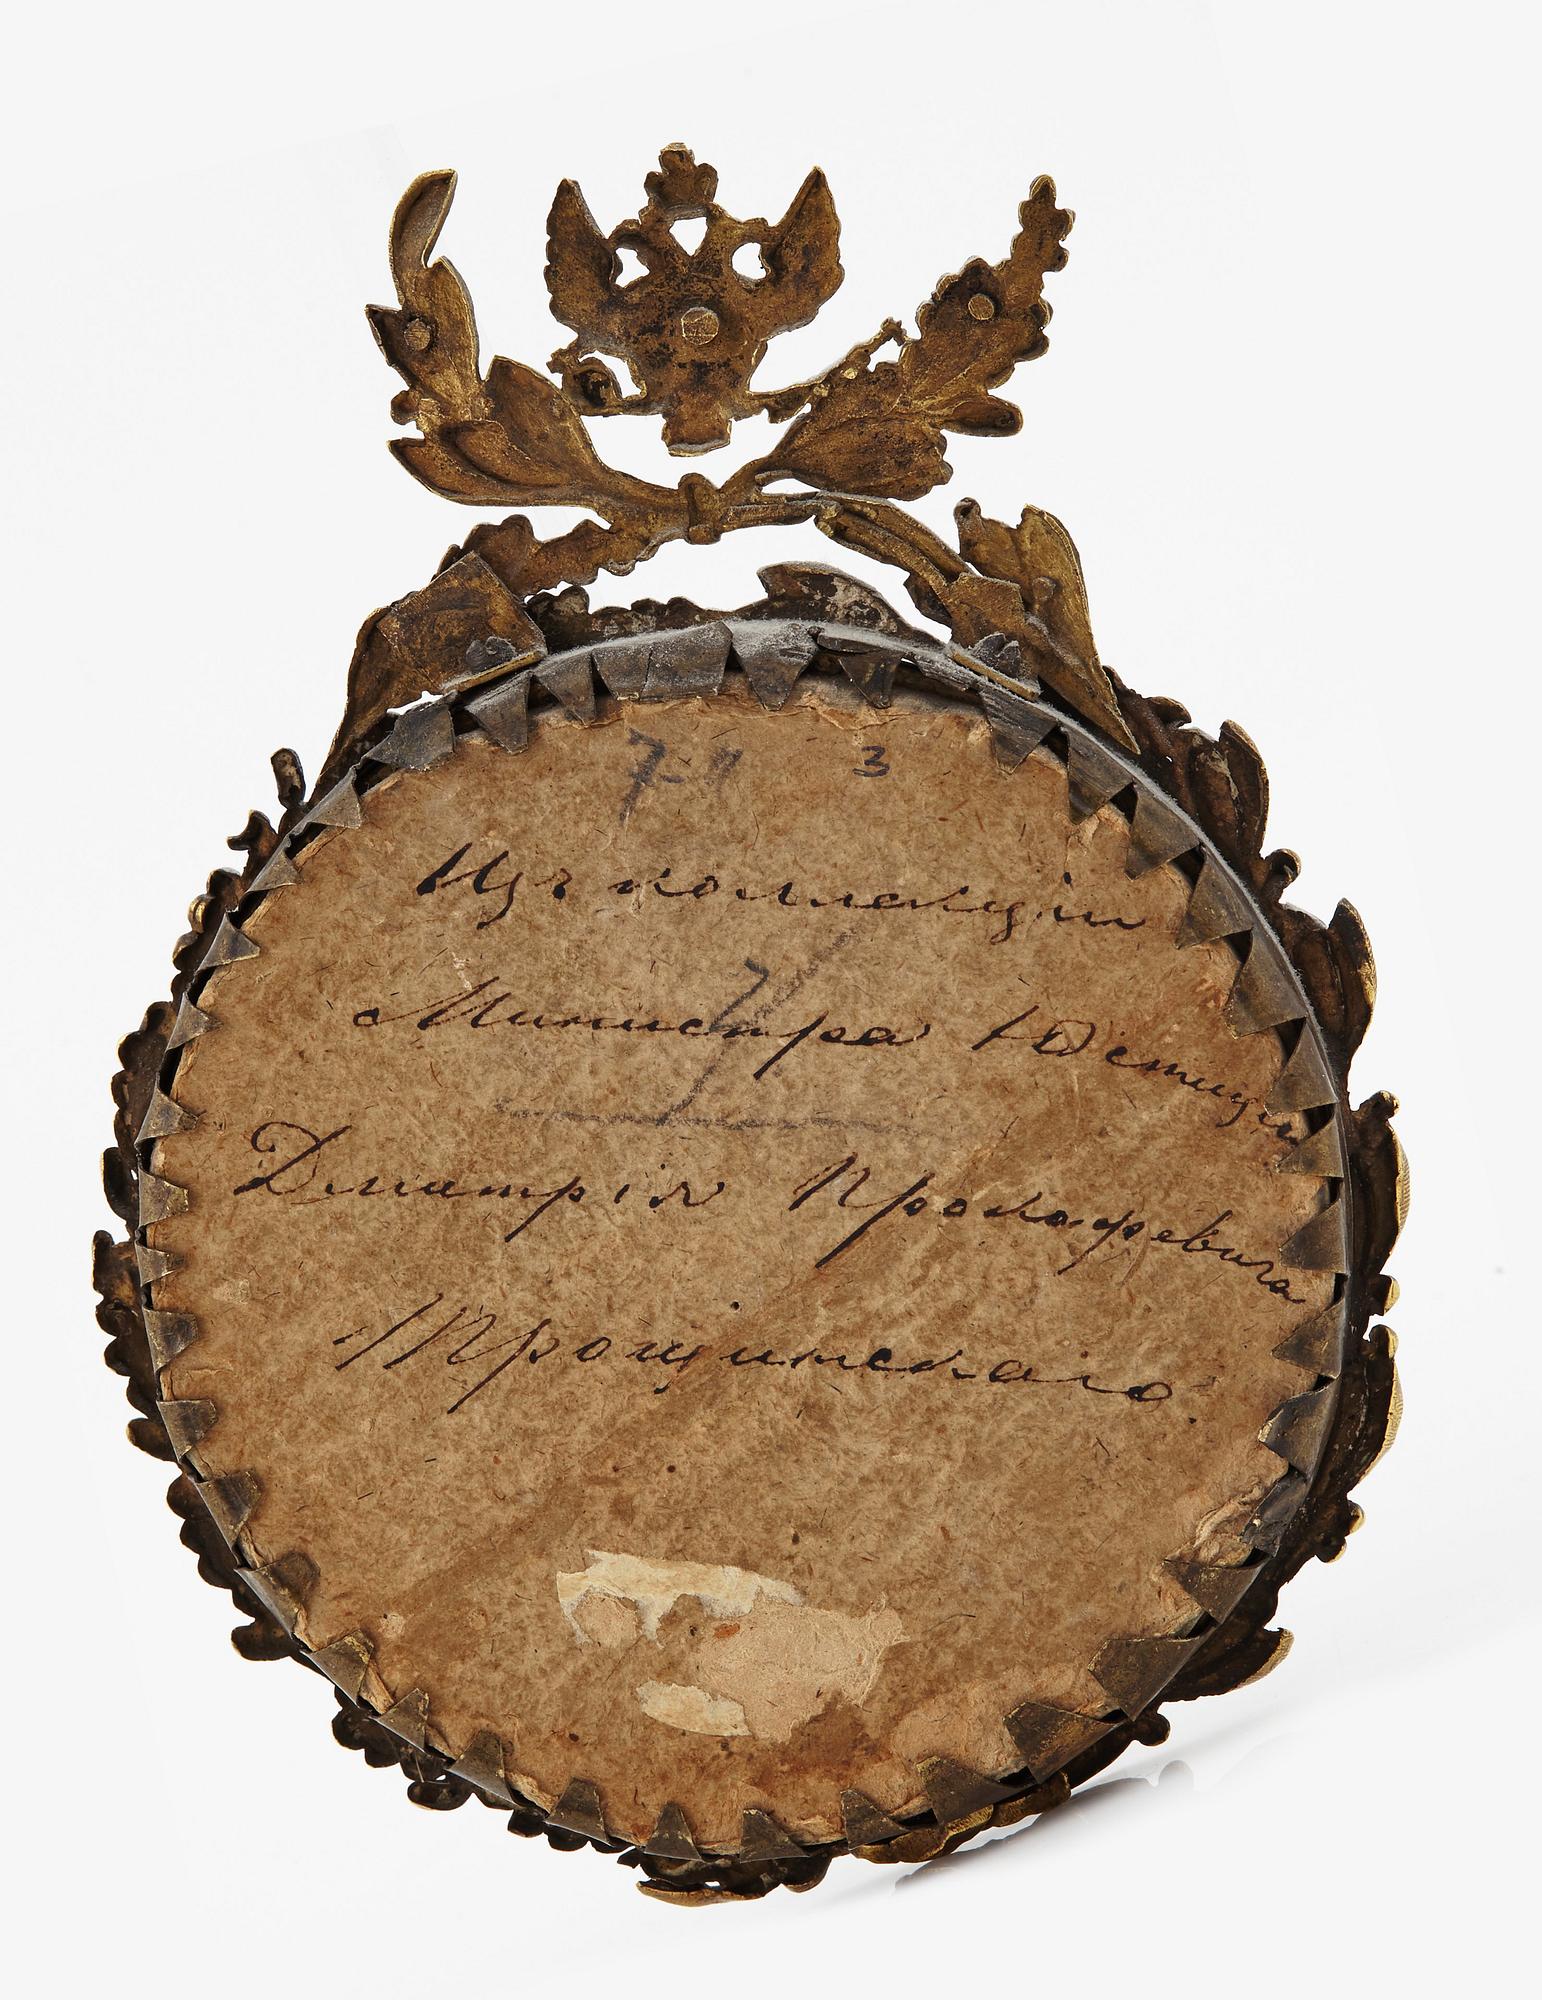 7-11 3
Изъ коллекціи
Министра Юстиціи
Дмитрія Прокофьевича
Трощинскаго.